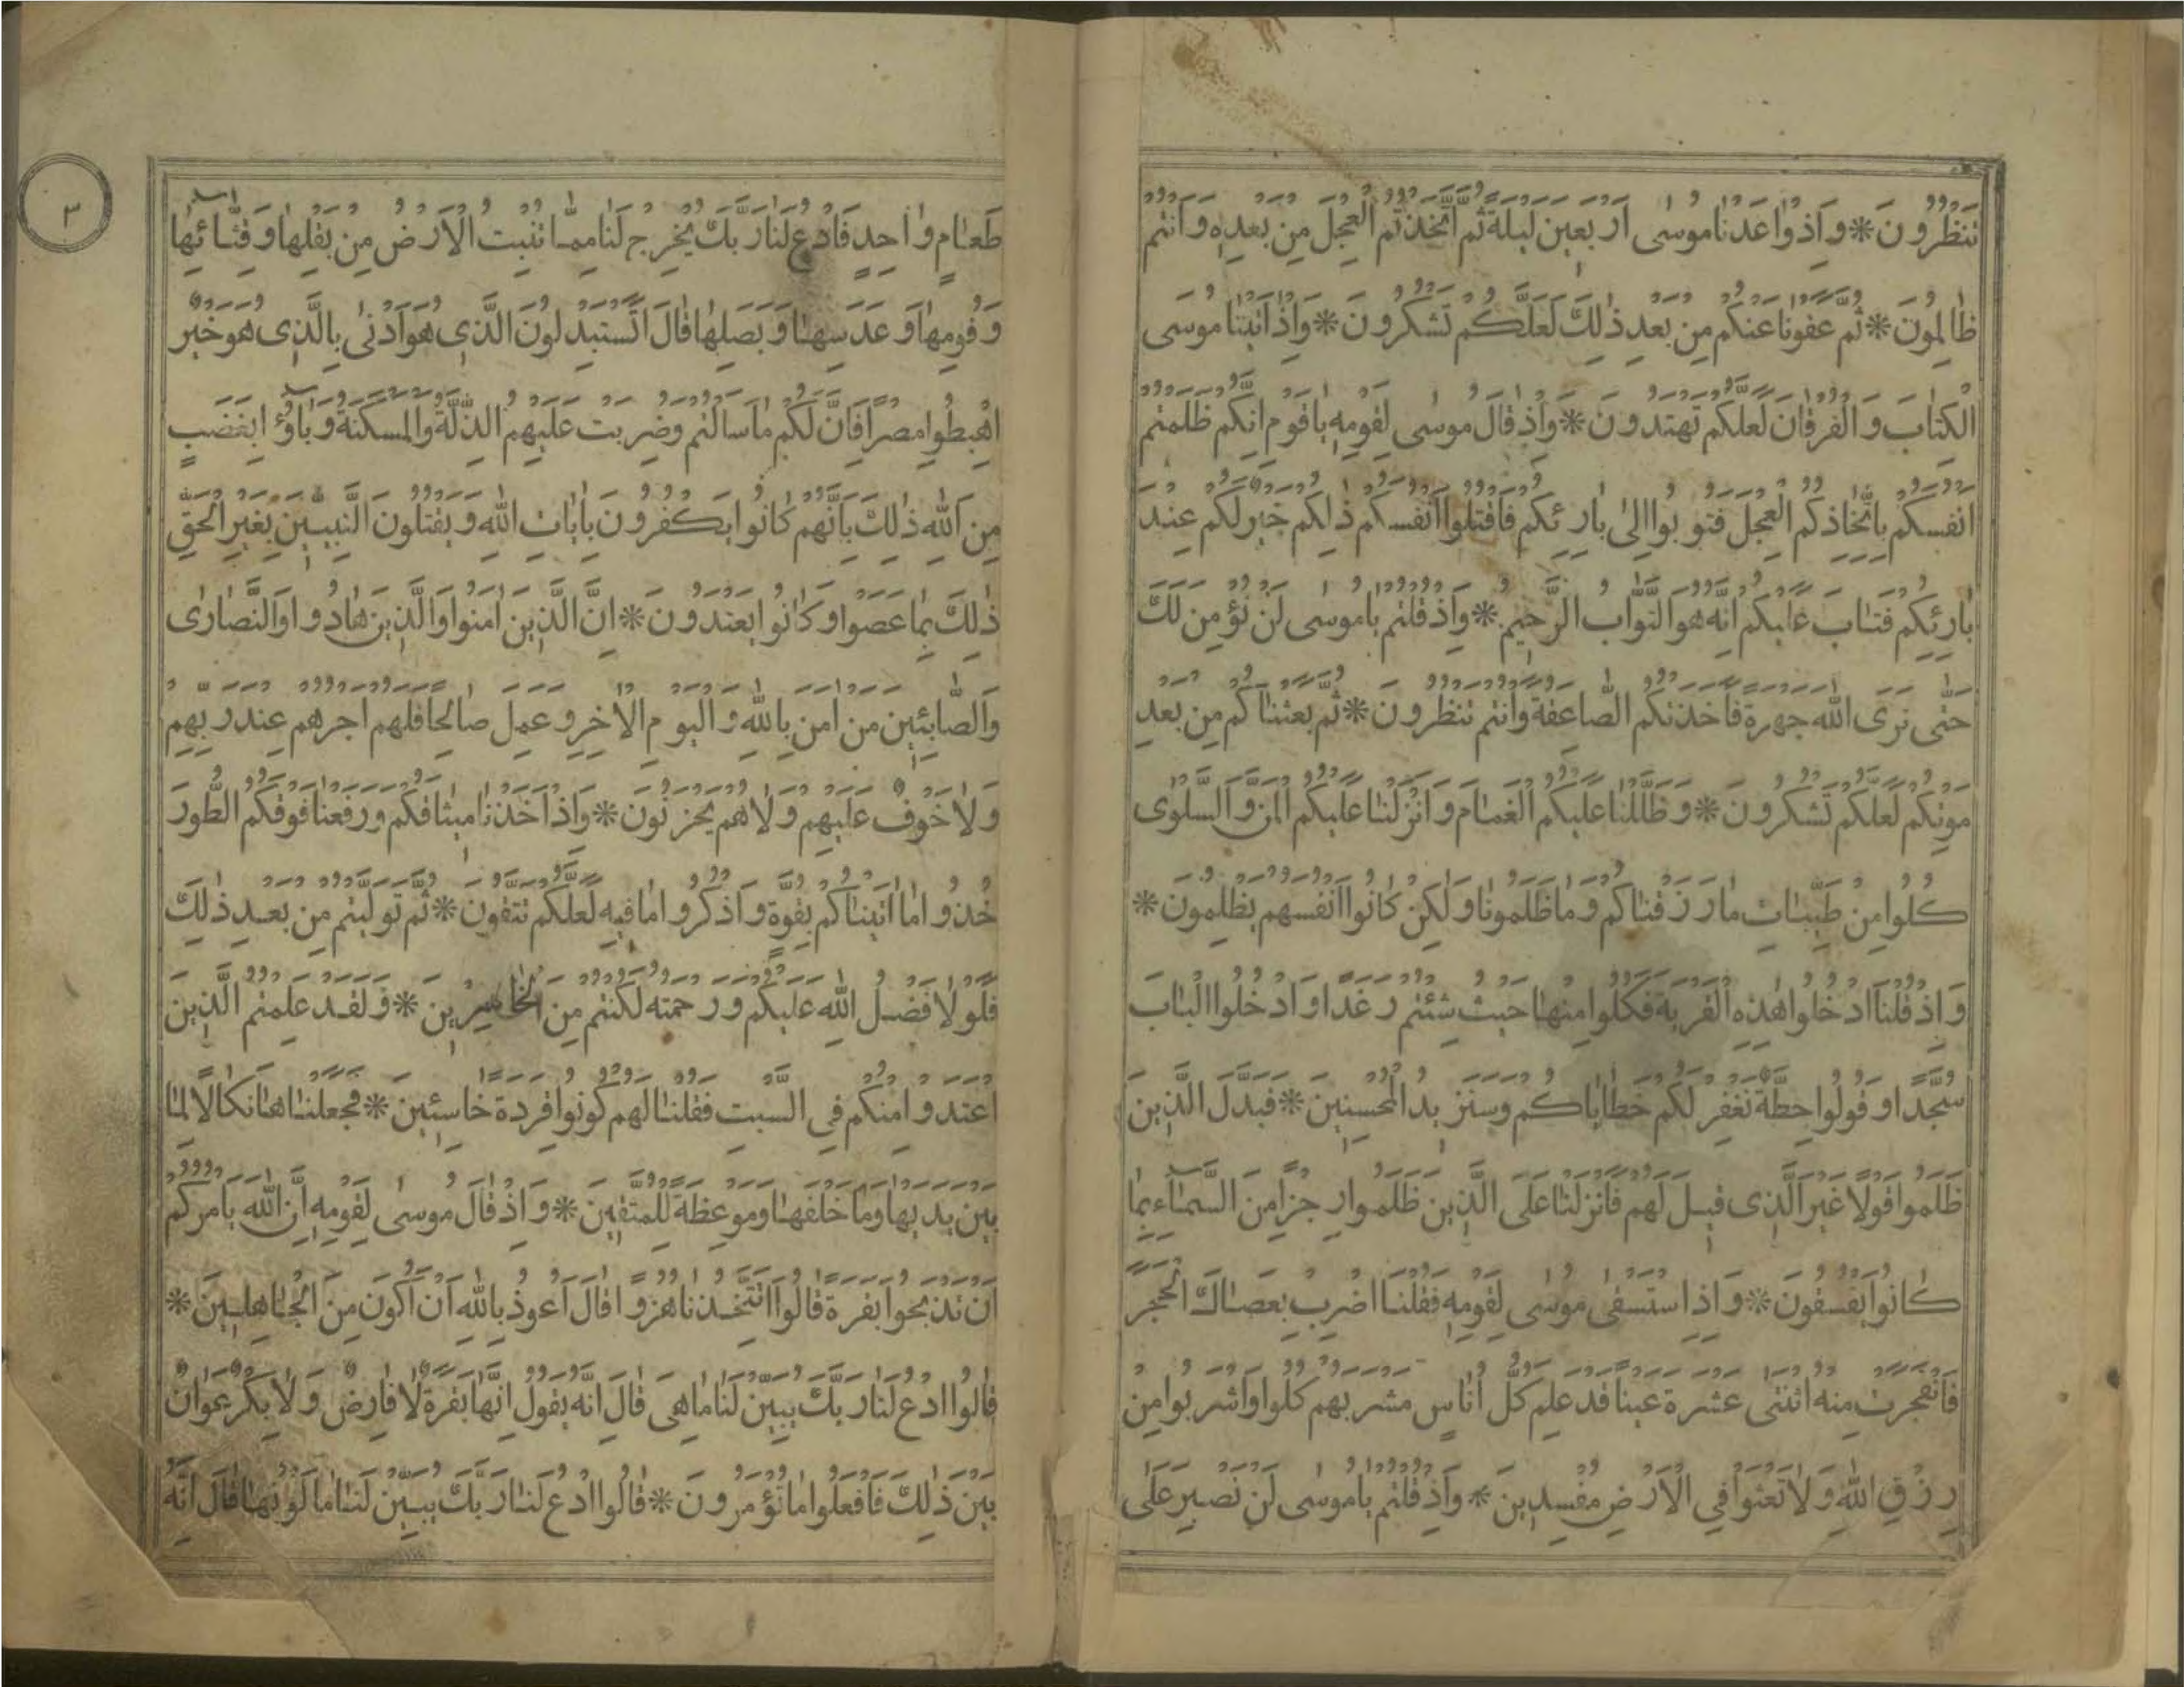 تَنْظُرُونَ * وَاِذْ وٰاعَدْنٰا مُوسٰى اَرْبَعِينَ لَيْلَةً ثُمَّ اتَّخَذْتُمُ الْعِجْلَ مِنْ بَعْدِهِ وَاَنْتُمْ
ظٰالِمُونَ * ثُمَّ عَفَوْنٰا عَنْكُمْ مِنْ بَعْدِ ذٰلِكَ لَعَلَّكُمْ تَشْكُرُونَ * وَاِذْ اٰتَيْنٰا مُوسَى
الْكِتٰابَ وَالْفُرْقٰانَ لَعَلَّكُمْ تَهْتَدُونَ * وَاِذْ قٰالَ مُوسٰى لِقَوْمِهِ يٰا قَوْمِ اِنَّكُمْ ظَلَمْتُمْ
اَنْفُسَكُمْ بِاتِّخٰاذِكُمُ الْعِجْلَ فَتُوبُوا اِلىٰ بٰارِئِكُمْ فَاقْتُلُوا اَنْفُسَكُمْ ذٰلِكُمْ خَيْرٌ لَكُمْ عِنْدَ
بٰارِئِكُمْ فَتٰابَ عَلَيْكُمْ اِنَّهُ هُوَ التَّوّٰابُ الرَّحِيمُ * وَاِذْ قُلْتُمْ يٰا مُوسٰى لَنْ نُؤْمِنَ لَكَ
حَتّٰى نَرَى اللّٰهَ جَهْرَةً فَاَخَذَتْكُمُ الصّٰاعِقَةُ وَاَنْتُمْ تَنْظُرُونَ * ثُمَّ بَعَثْنٰاكُمْ مِنْ بَعْدِ
مَوْتِكُمْ لَعَلَّكُمْ تَشْكُرُونَ * وَظَلَّلْنٰا عَلَيْكُمُ الْغَمٰامَ وَاَنْزَلْنٰا عَلَيْكُمُ الْمَنَّ وَالسَّلْوٰى
كُلُوا مِنْ طَيِّبٰاتِ مٰا رَزَقْنٰاكُمْ وَمٰا ظَلَمُونٰا وَلٰكِنْ كٰانُوا اَنْفُسَهُمْ يَظْلِمُونَ *
وَاِذْ قُلْنَا ادْخُلُوا هٰذِهِ الْقَرْيَةَ فَكُلُوا مِنْهٰا حَيْثُ شِئْتُمْ رَغَدًا وَادْخُلُوا الْبٰابَ
سُجَّدًا وَقُولُوا حِطَّةٌ نَغْفِرْ لَكُمْ خَطٰايٰاكُمْ وَسَنَزِيدُ الْمُحْسِنِينَ * فَبَدَّلَ الَّذِينَ
ظَلَمُوا قَوْلًا غَيْرَ الَّذِى قِيلَ لَهُمْ فَاَنْزَلْنٰا عَلَى الَّذِينَ ظَلَمُوا رِجْزًا مِنَ السَّمٰاۤءِ بِمٰا
كٰانُوا يَفْسُقُونَ * وَاِذِ اسْتَسْقٰى مُوسٰى لِقَوْمِهِ فَقُلْنَا اضْرِبْ بِعَصٰاكَ الْحَجَرَ
فَانْفَجَرَتْ مِنْهُ اثْنَتٰى عَشْرَةَ عَيْنًا قَدْ عَلِمَ كُلُّ اُنٰاسٍ مَشْرَبَهُمْ كُلُوا وَاشْرَبُوا مِنْ
رِزْقِ اللّٰهِ وَلٰا تَعْثَوْا فِي الْاَرْضِ مُفْسِدِينَ * وَاِذْ قُلْتُمْ يٰا مُوسٰى لَنْ نَصْبِرَ عَلٰى
٣
طَعٰامٍ وٰاحِدٍ فَادْعُ لَنٰا رَبَّكَ يُخْرِجْ لَنٰا مِمّٰا تُنْبِتُ الْاَرْضُ مِنْ بَقْلِهٰا وَقِثّٰائِهٰا
وَفُومِهٰا وَعَدَسِهٰا وَبَصَلِهٰا قٰالَ اَتَسْتَبْدِلُونَ الَّذِى هُوَ اَدْنٰى بِالَّذِى هُوَ خَيْرٌ
اهْبِطُوا مِصْرًا فَاِنَّ لَكُمْ مٰا سَاَلْتُمْ وَضُرِبَتْ عَلَيْهِمُ الذِّلَّةُ وَالْمَسْكَنَةُ وَبٰاۤؤُ ابِغَضَبٍ
مِنَ اللّٰهِ ذٰلِكَ بِاَنَّهُمْ كٰانُوا يَكْفُرُونَ بِاٰيٰاتِ اللّٰهِ وَيَقْتُلُونَ النَّبِيّينَ بِغَيْرِ الْحَقِّ
ذٰلِكَ بِمٰا عَصَوْا وَكٰانُوا يَعْتَدُونَ * اِنَّ الَّذِينَ اٰمَنُوا وَالَّذِينَ هٰادُوا وَالنَّصٰارٰى
وَالصّٰابِئِينَ مَنْ اٰمَنَ بِاللّٰهِ وَالْيَوْمِ الْاٰخِرِ وَعَمِلَ صٰالِحًا فَلَهُمْ اَجْرُهُمْ عِنْدَ رَبِّهِمْ
وَلٰا خَوْفٌ عَلَيْهِمْ وَلٰا هُمْ يَحْزَنُونَ * وَاِذْ اَخَذْنٰا مِيثٰاقَكُمْ وَرَفَعْنٰا فَوْقَكُمُ الطُّورَ
خُذُوا مٰا اٰتَيْنٰاكُمْ بِقُوَّةٍ وَاذْكُرُوا مٰا فِيهِ لَعَلَّكُمْ تَتَّقُونَ * ثُمَّ تَوَلَّيْتُمْ مِنْ بَعْدِ ذٰلِكَ
فَلَوْلٰا فَضْلُ اللّٰهِ عَلَيْكُمْ وَرَحْمَتُهُ لَكُنْتُمْ مِنَ الْخٰاسِرِينَ * وَلَقَدْ عَلِمْتُمُ الَّذِينَ
اعْتَدَوْا مِنْكُمْ فِي السَّبْتِ فَقُلْنٰا لَهُمْ كُونُوا قِرَدَةً خٰاسِئِينَ * فَجَعَلْنٰاهٰا نَكٰالًا لِمٰا
بَيْنَ يَدَيْهٰا وَمٰا خَلْفَهٰا وَمَوْعِظَةً لِلْمُتَّقِينَ * وَاِذْ قٰالَ مُوسٰى لِقَوْمِهِ اِنَّ اللّٰهَ يَاْمُرُكُمْ
اَنْ تَذْبَحُوا بَقَرَةً قٰالُوا اَتَتَّخِذُنٰا هُزُوًا قٰالَ اَعُوذُ بِاللّٰهِ اَنْ اَكُونَ مِنَ الْجٰاهِلِينَ *
قٰالُوا ادْعُ لَنٰا رَبَّكَ يُبَيِّنْ لَنٰا مٰا هِىَ قٰالَ اِنَّهُ يَقُولُ اِنَّهٰا بَقَرَةٌ لٰا فٰارِضٌ وَلٰا بِكْرٌ عَوٰانٌ
بَيْنَ ذٰلِكَ فَافْعَلُوا مٰا تُؤْمَرُونَ * قٰالُوا ادْعُ لَنٰا رَبَّكَ يُبَيِّنْ لَنٰا مٰا لَوْنُهٰا قٰالَ اِنَّهُ